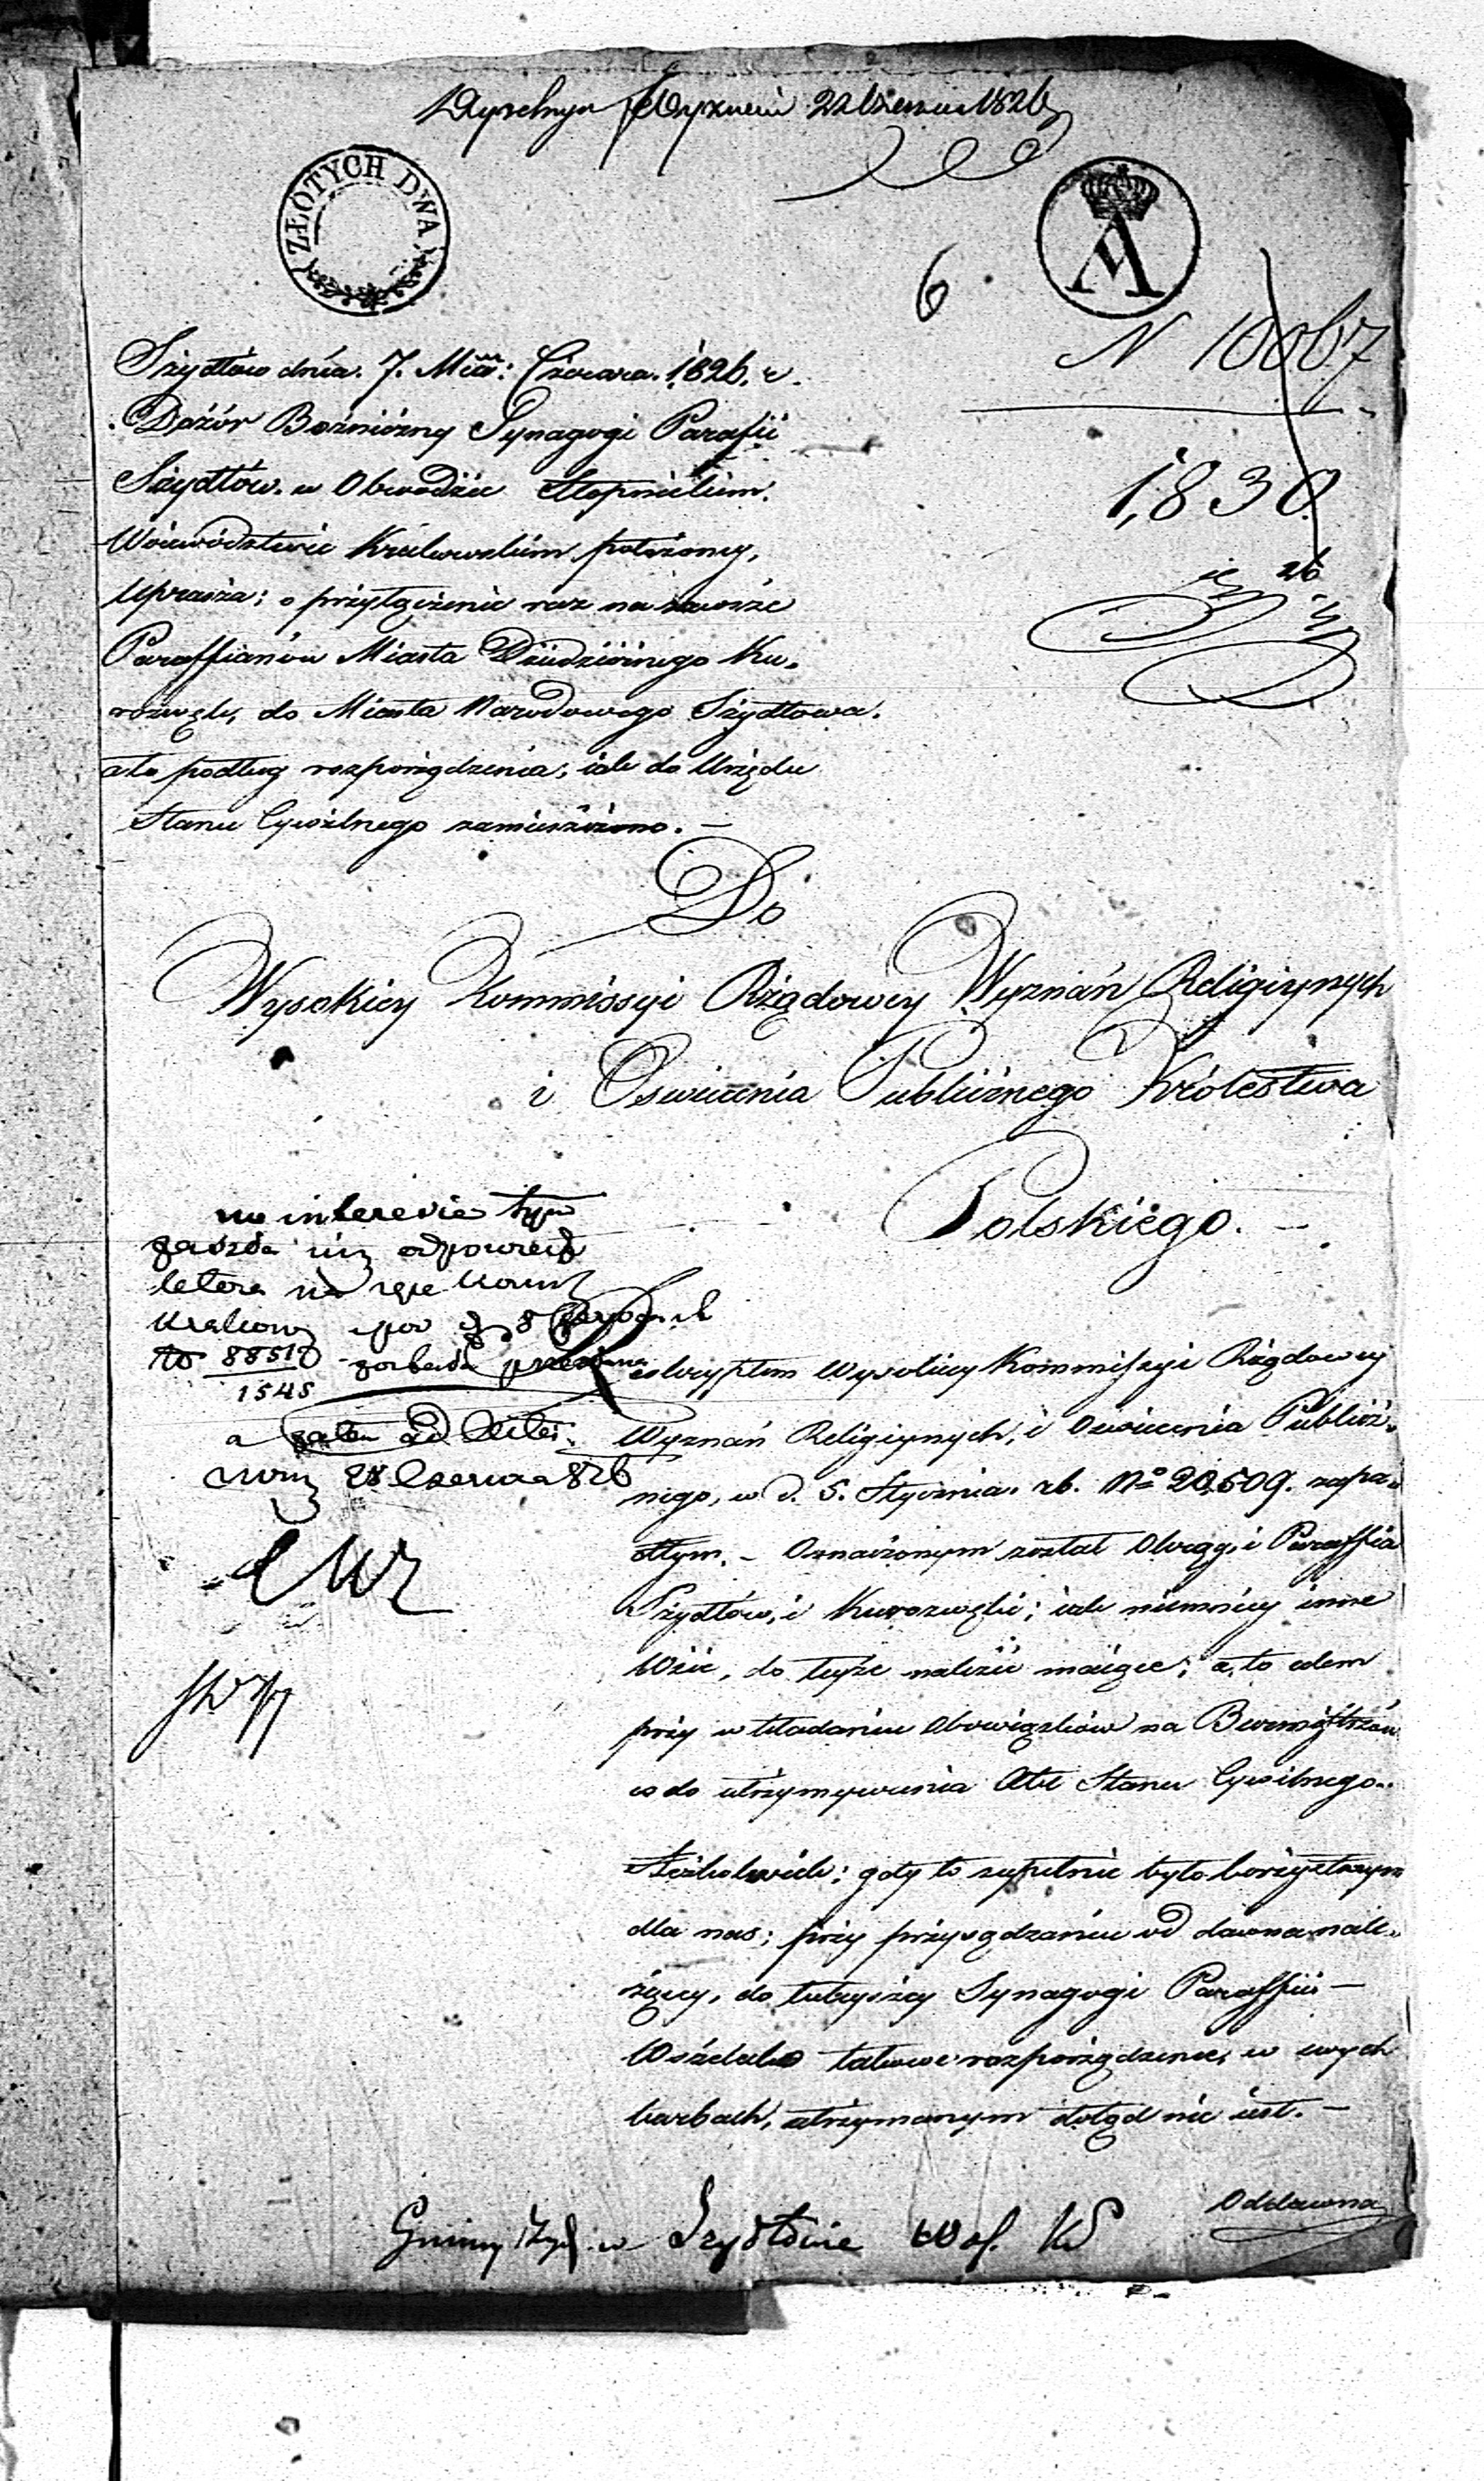 22 Czerwca 1826
ZŁOTYCH DWA
A
6
N 10067
1,830
26
Szydłów dnia. 7. Mca: Czerwca. 1826. r.
Dozór Boźnićzny Synagogi Parafii
Szydłów. w Obwodzie Stopnickim.
Woiewództwie Krakowskim położony,
uprasza; o przyłączenie raz na zawsze
Paraffianów Miasta Dziedzićznego Ku-
rozwęk, do Miasta Narodowego Szydłowa.
a to podług rozporządzenia, iak do Urzędu
Stanu Cywilnego zamieszczono. —
Do
Wysokiey Kommissyi Rządowey Wyznań Religiynych
i Oswiecenia Publicznego Królestwa
Polskiego. —
na interesie tym
zaszła iuż odpowiedź
na ręce Komi
Krakow
No 88517
1545
a zatem ad acta.
28 Czerwca 826
Reskryptem Wysokiey Kommissyi Rządowey
Wyznań Religiynych, i Oswiecenia Publicz-
nego, w d. 5. Stycznia. rb. No 20,509. zapa-
dłym. – Oznaczonym został Okrąg, i Paraffia
Szydłów, i Kurozwęki; iak niemniey inne
Wsie, do teyże należeć maiące; a to
przy wkładaniu Obowiązków na Burmistrzów
do utrzymywania Akt Stanu Cywilnego..
Jeżkolwiek; gdy to zupełnie było korzystnym
dla nas; przy przysądzaniu od dawna nale-
żący, do tuteyszey Synagogi Paraffii —
Wszelako takowe rozporządzenie, w swych
karbach, utrzymanym dotąd nie iest. —
Oddawna
Gminy Żyd. w Szydłowie Woj. K